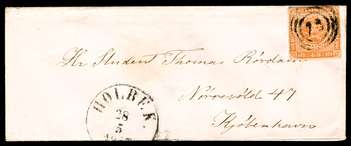 Hr Student Thomas Rördam
Nörrevold 47
Kjöbenhavn
HOLBEK
28
5